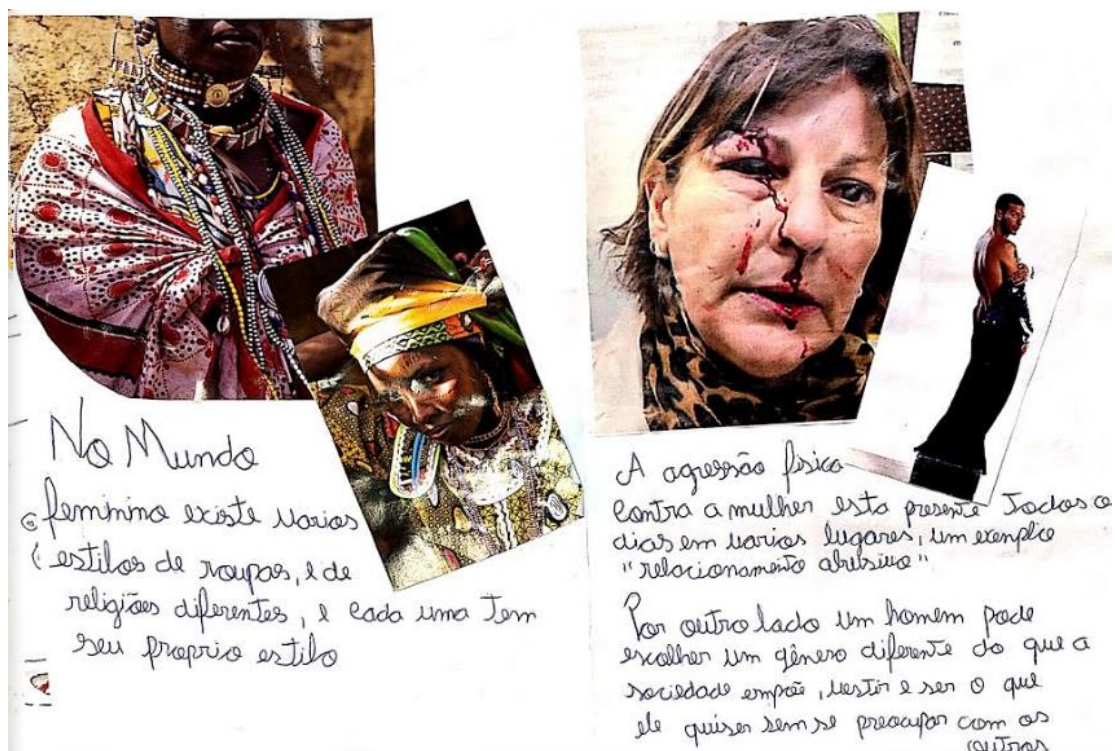 No Mundo
feminino existe varios
estilos de roupas, e de
religiões diferentes, e cada uma tem
seu proprio estilo
A agressão fisica
contra a mulher esta presente Todos o
dias em varios lugares, um exemplo
"relacionamento abusivo"
Por outro lado um homem pode
escolher um gênero diferente do que a
sociedade empõe, vestir e ser o que
ele quiser sem se preocupar com os
outros